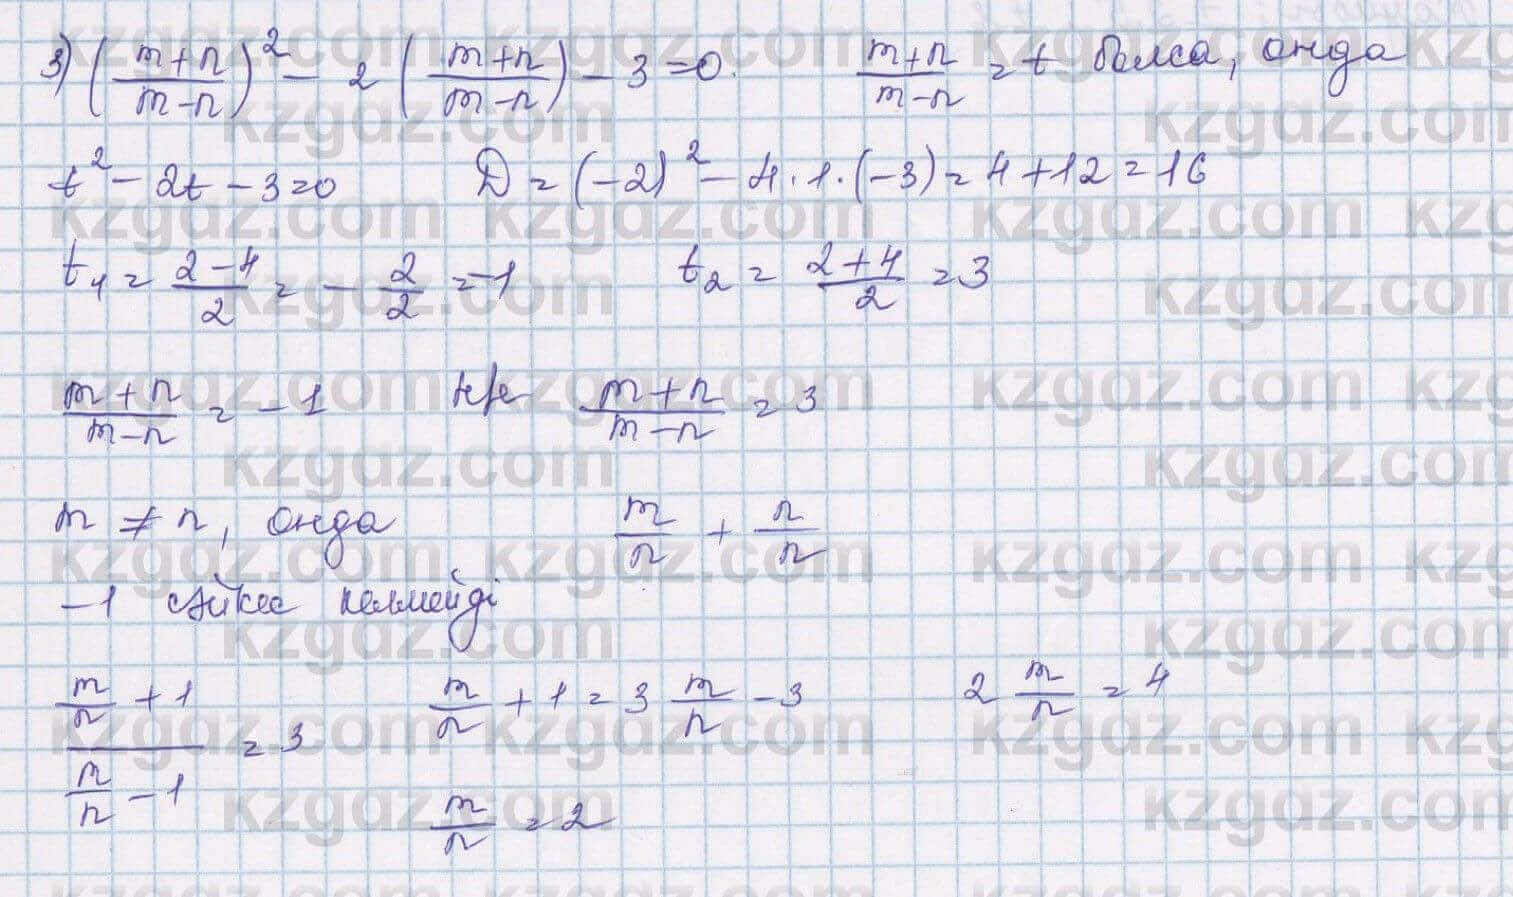 3) ((m+n)/(m-n))² - 2 ((m+n)/(m-n)) - 3 = 0. (m+n)/(m-n) = t болса, онда
t² - 2t - 3 = 0 D = (-2)² - 4·1·(-3) = 4 + 12 = 16
t₁ = (2-4)/2 = - 2/2 = -1 t₂ = (2+4)/2 = 3
(m+n)/(m-n) = -1 н/е (m+n)/(m-n) = 3
m ≠ n, онда m/n + n/n
-1 сәйкес келмейді
(m/n + 1)/(m/n - 1) = 3 m/n + 1 = 3 m/n - 3 2 m/n = 4
m/n = 2
kzgdz.com